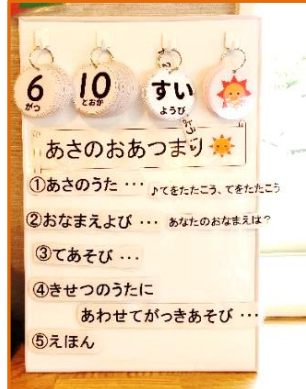 6 がつ
10 とおか
すい ようび
あさのおあつまり
①あさのうた … ♪てをたたこう、てをたたこう
②おなまえよび … あなたのおなまえは?
③てあそび …
④きせつのうたに
あわせてがっきあそび …
⑤えほん